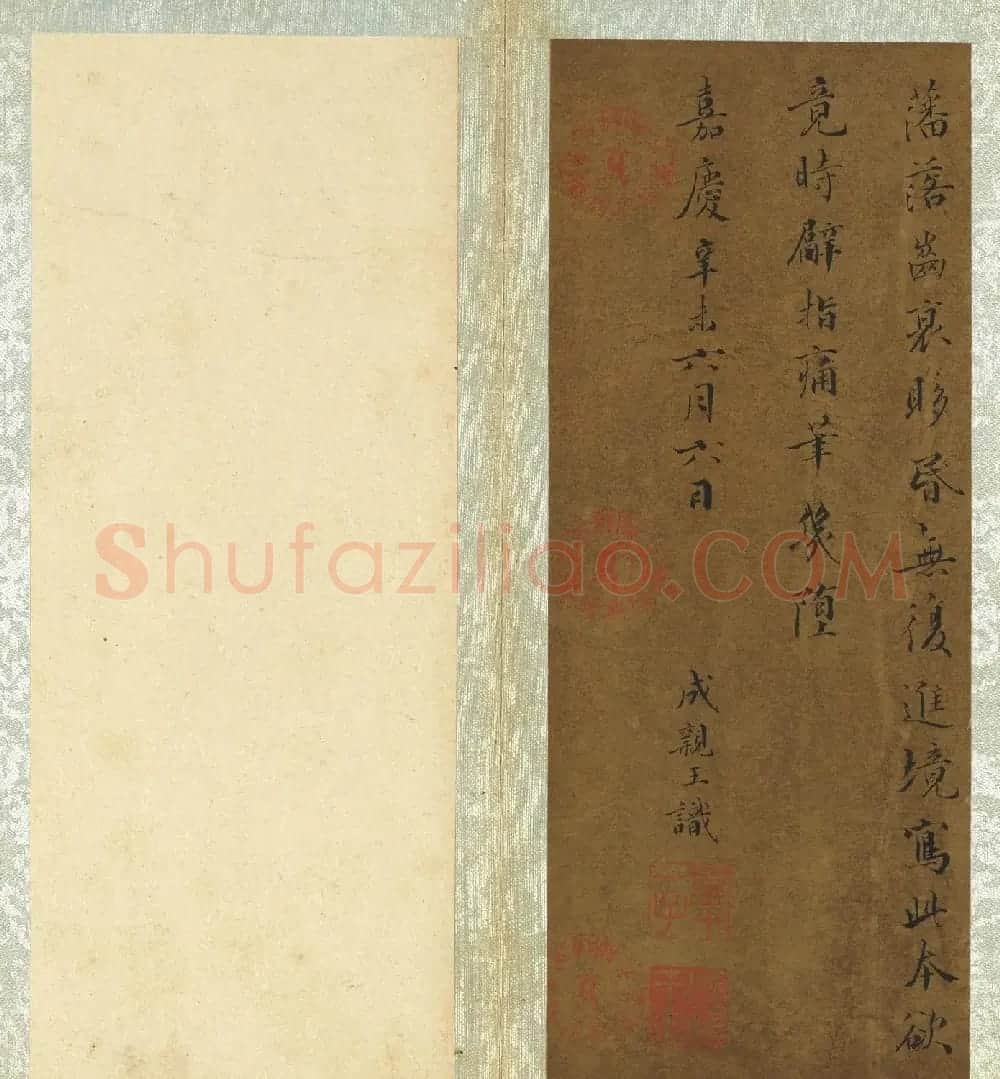 藩落齒衰眵昏無復進境寫此本欲
竟時擘指痛筆幾墮
嘉慶辛未六月六日
成親王識
Shufaziliao.COM